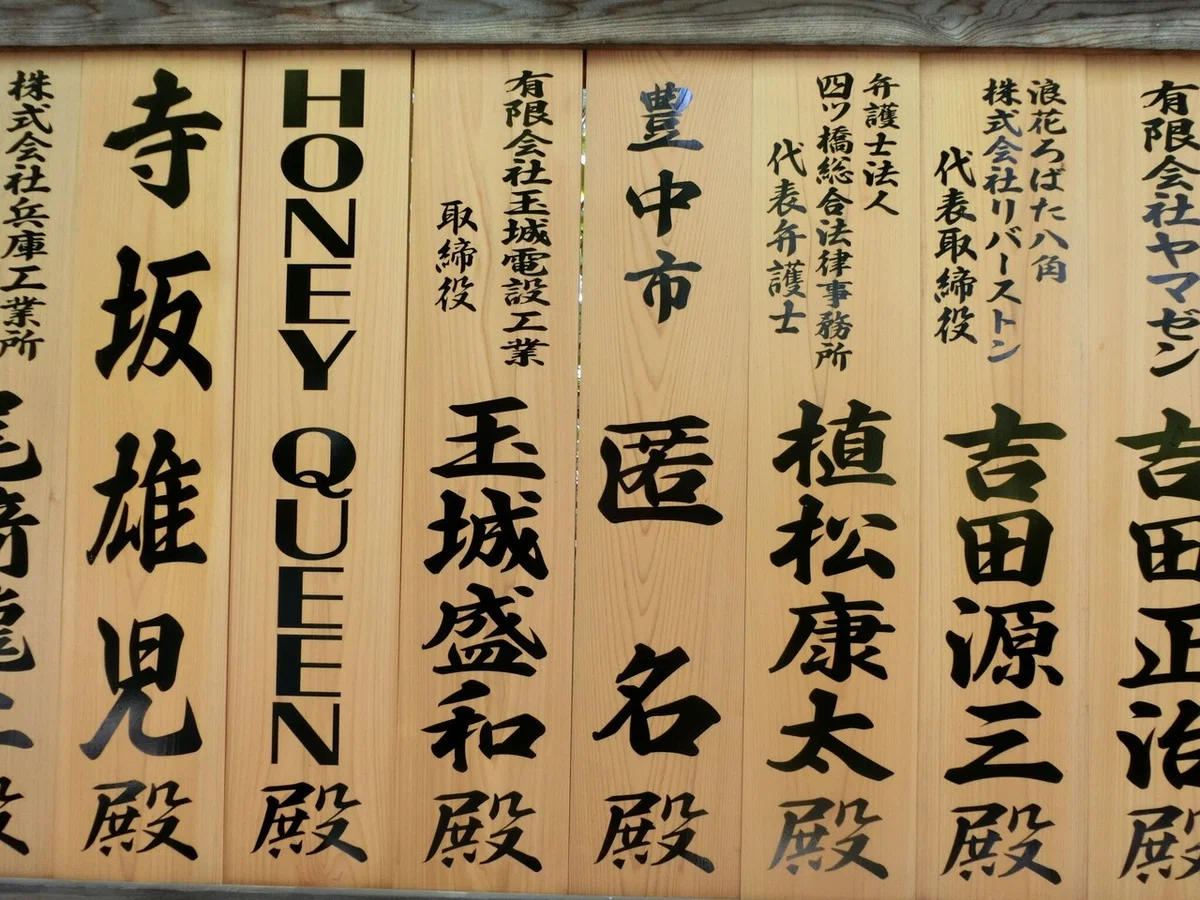 有限会社ヤマゼン
吉田正治
殿
浪花ろばた八角
株式会社リバーストン
代表取締役
吉田源三
殿
弁護士法人
四ツ橋総合法律事務所
代表弁護士
植松康太
殿
豊中市
匿名
殿
有限会社玉城電設工業
取締役
玉城盛和
殿
HONEY QUEEN
殿
寺坂雄児
殿
株式会社兵庫工業所